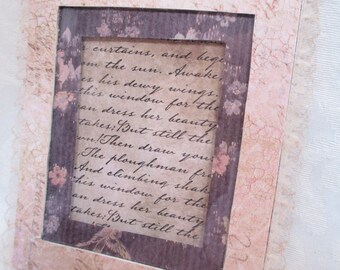 curtains, and bege
the sun. Awake
his dewy wings
this window for the
an dress her beauty
takes: But still the
Then draw your
The ploughman fr
And climbing shak
his window for the
an dress her beauty
takes: But still the